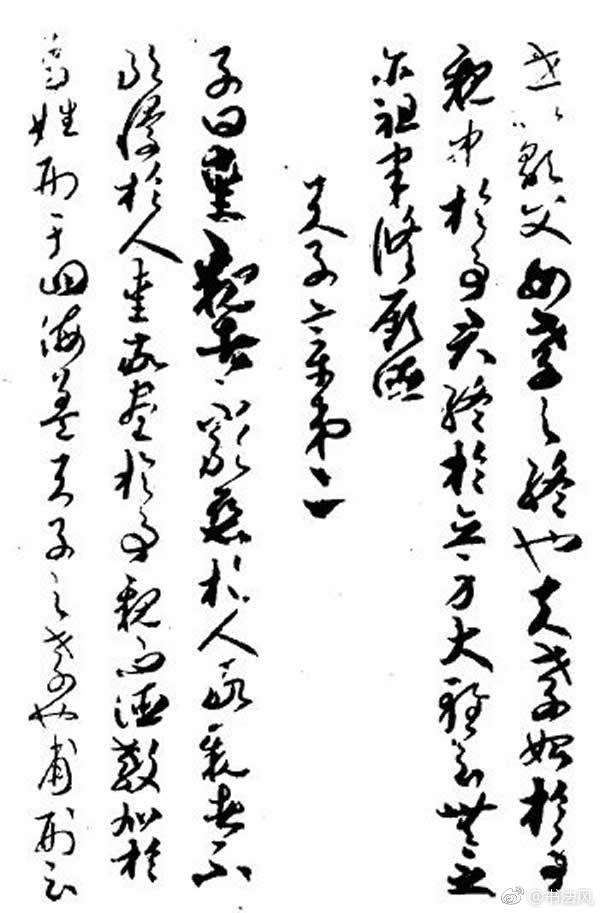 世以顯父母孝之終也夫孝始於事
親中於事君終於立身大雅云無念
尒祖聿脩厥德
天子章第二
子曰愛親者不敢惡於人敬親者不
敢慢於人愛敬盡於事親而德教加於
百姓刑于四海蓋天子之孝也甫刑云
@书法风